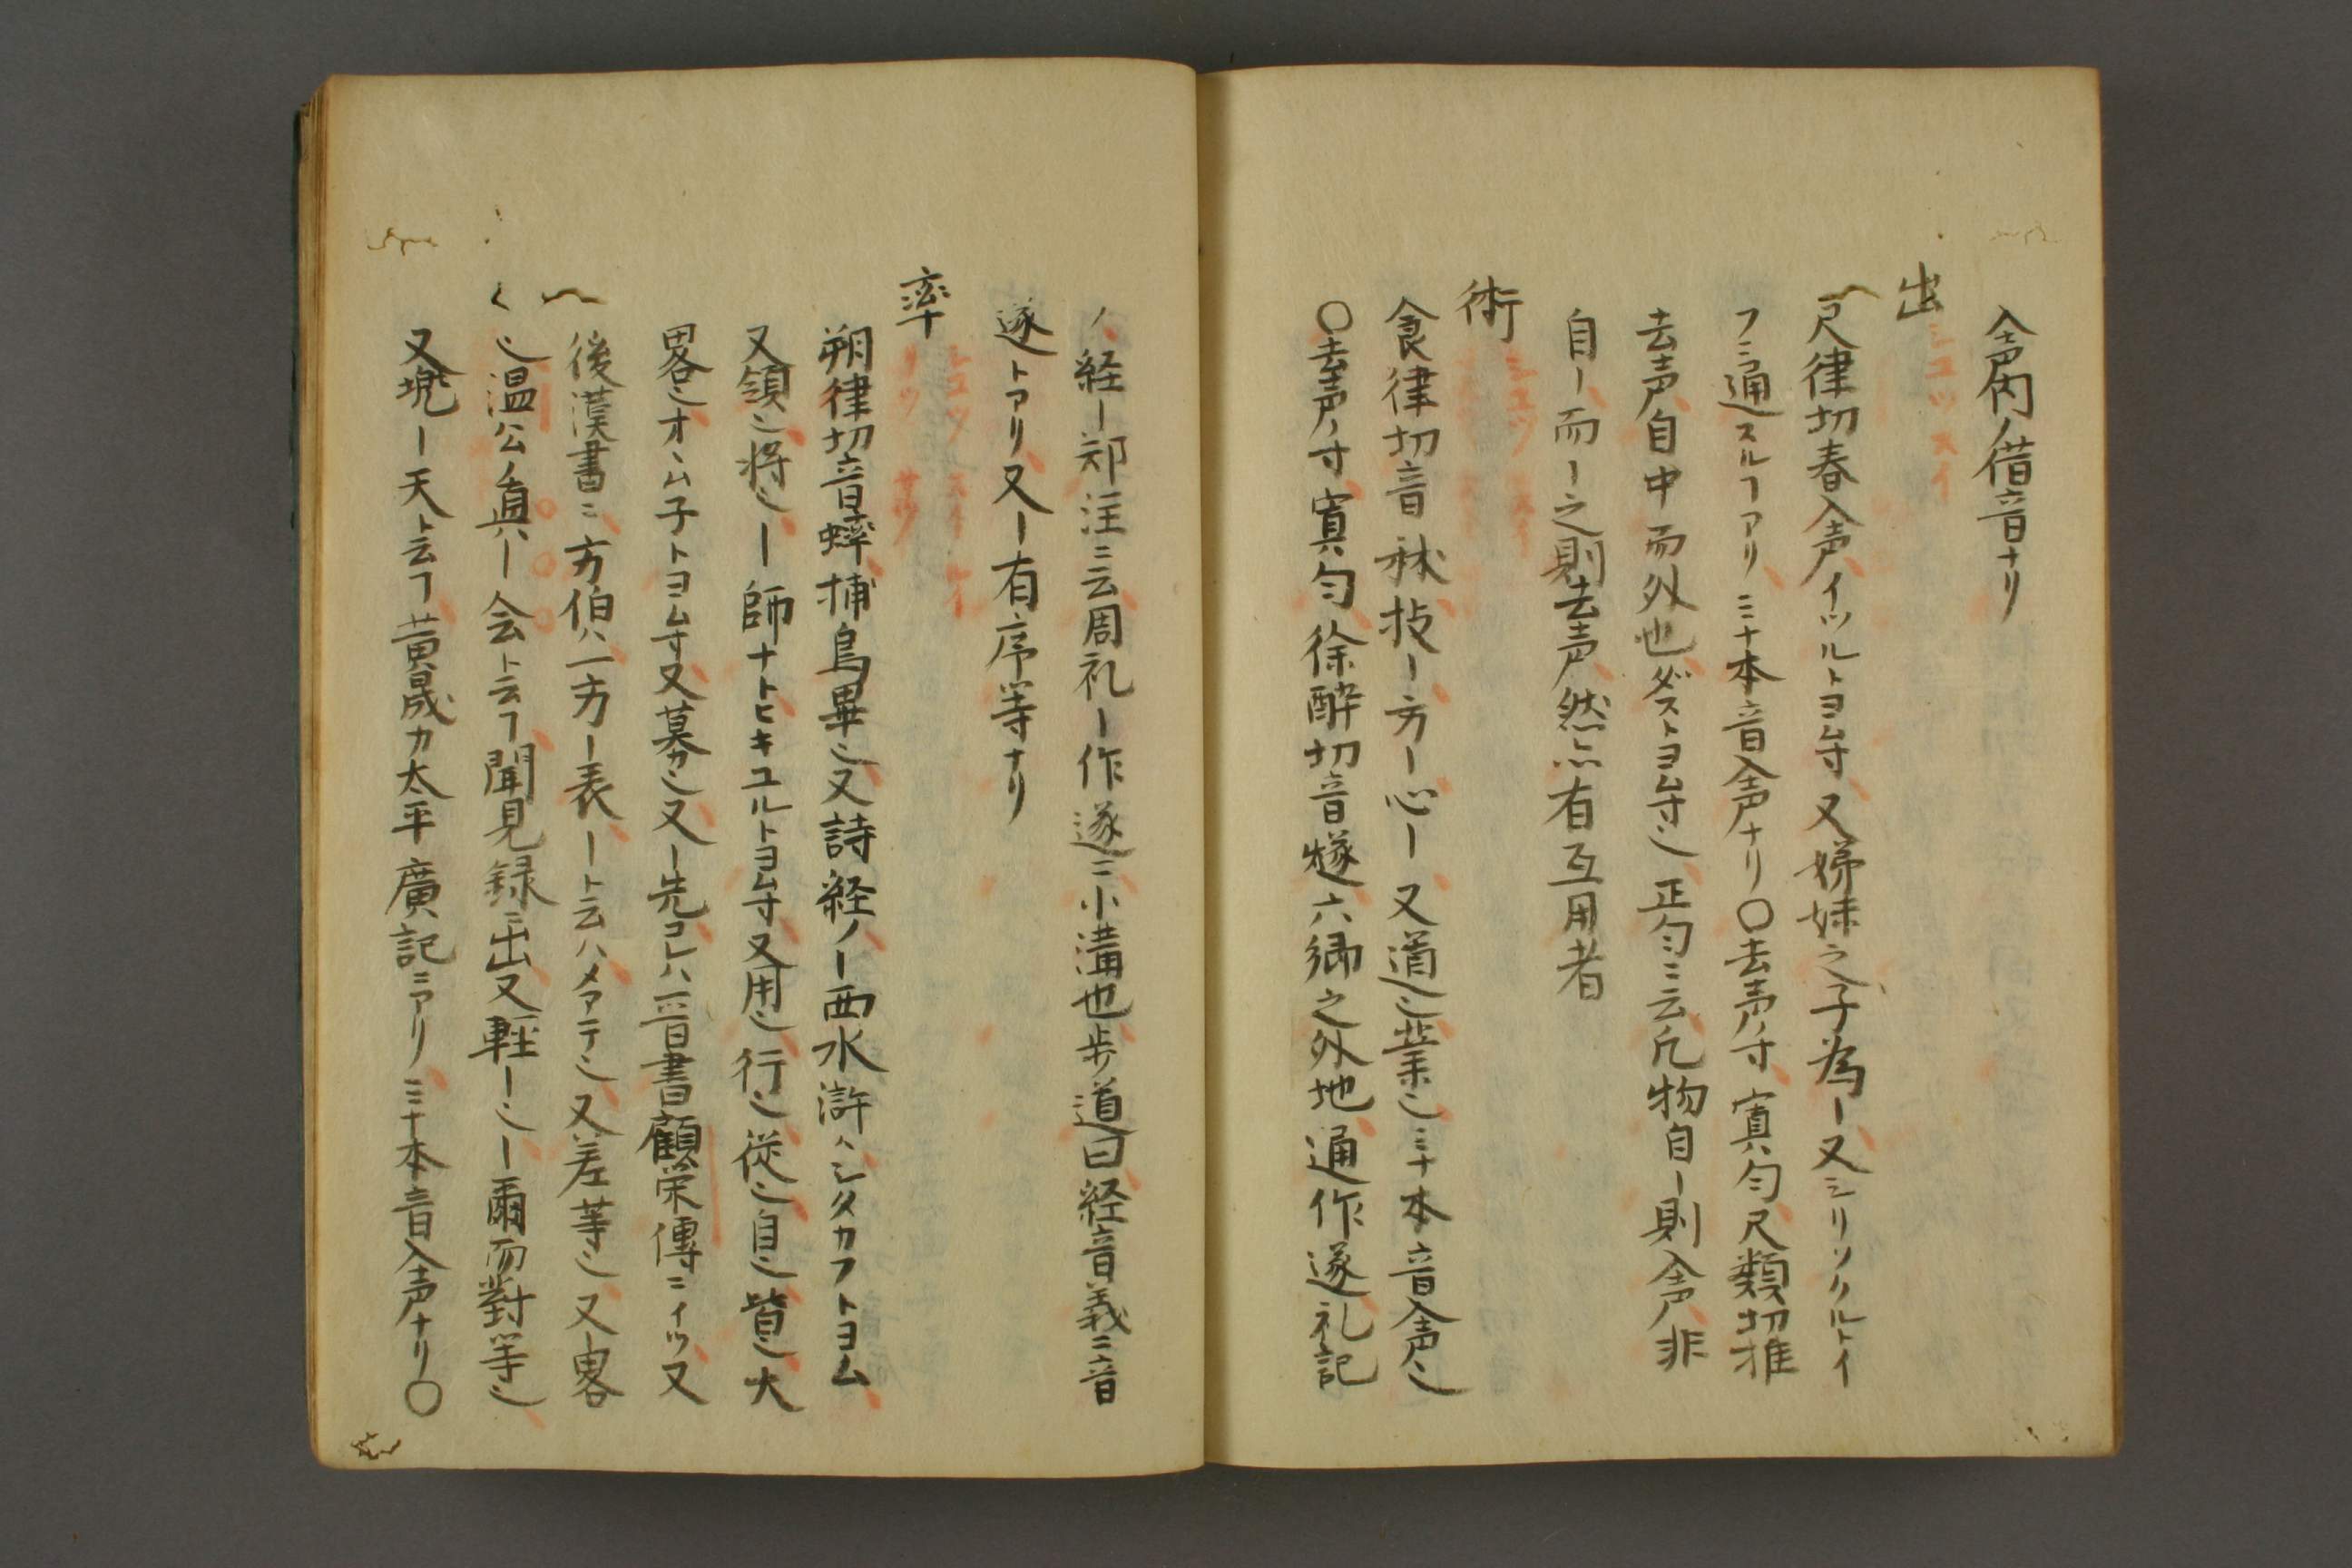 入声内ノ借音ナリ
出 シユツ スイ
尺律切春入声イツルトヨム寸又姊妹之子為ー又シリソクルトイ
フニ通スルヿアリミナ本音入声ナリ〇去声ノ寸寘匀尺類切推
去声自中而外也ダストヨム寸〻正匀ニ云凡物自ー則入声非
自ー而ー之則去声然亦有互用者
術 シユツ スイ
食律切音秫技ー方ー心ー又道〻業〻ミナ本音入声〻
〇去声ノ寸寘匀徐酔切音燧六郷之外地通作遂礼記
ノ経ー郑注ニ云周礼ー作遂ニ小溝也歩道曰経音義ニ音
遂トアリ又ー有序等ナリ
率 シユツ スイ ルイ リツ サツ
朔律切音蟀捕鳥畢〻又詩経ノー西水滸ハシタカフトヨム
又領〻将〻ー師ナトヒキユルトヨム寸又用〻行〻従〻自〻皆〻大
畧〻オヽム子トヨム寸又募〻又ー先コレハ晋書顧栄傳ニイツ又
後漢書ニ方伯ハ一方ー表ート云ハメアテ〻又差等〻又畧
〻温公ノ真ー会ト云フ聞見録ニ出又軽ー〻ー爾而對等〻
又ー天ト云フ黄晟カ太平廣記ニアリミナ本音入声ナリ〇